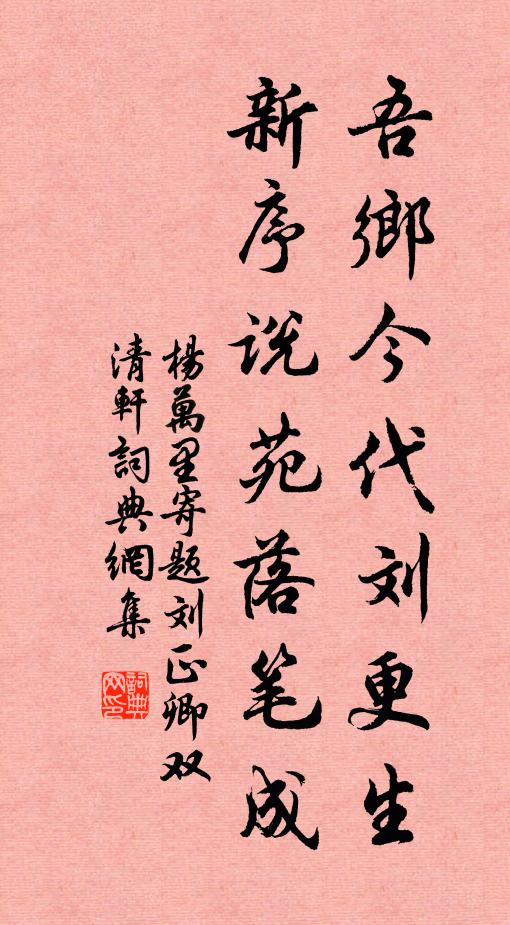 吾鄉今代刘更生
新序说苑落笔成
楊萬里寄题刘正卿双
清軒詞典網集
詞典
网印